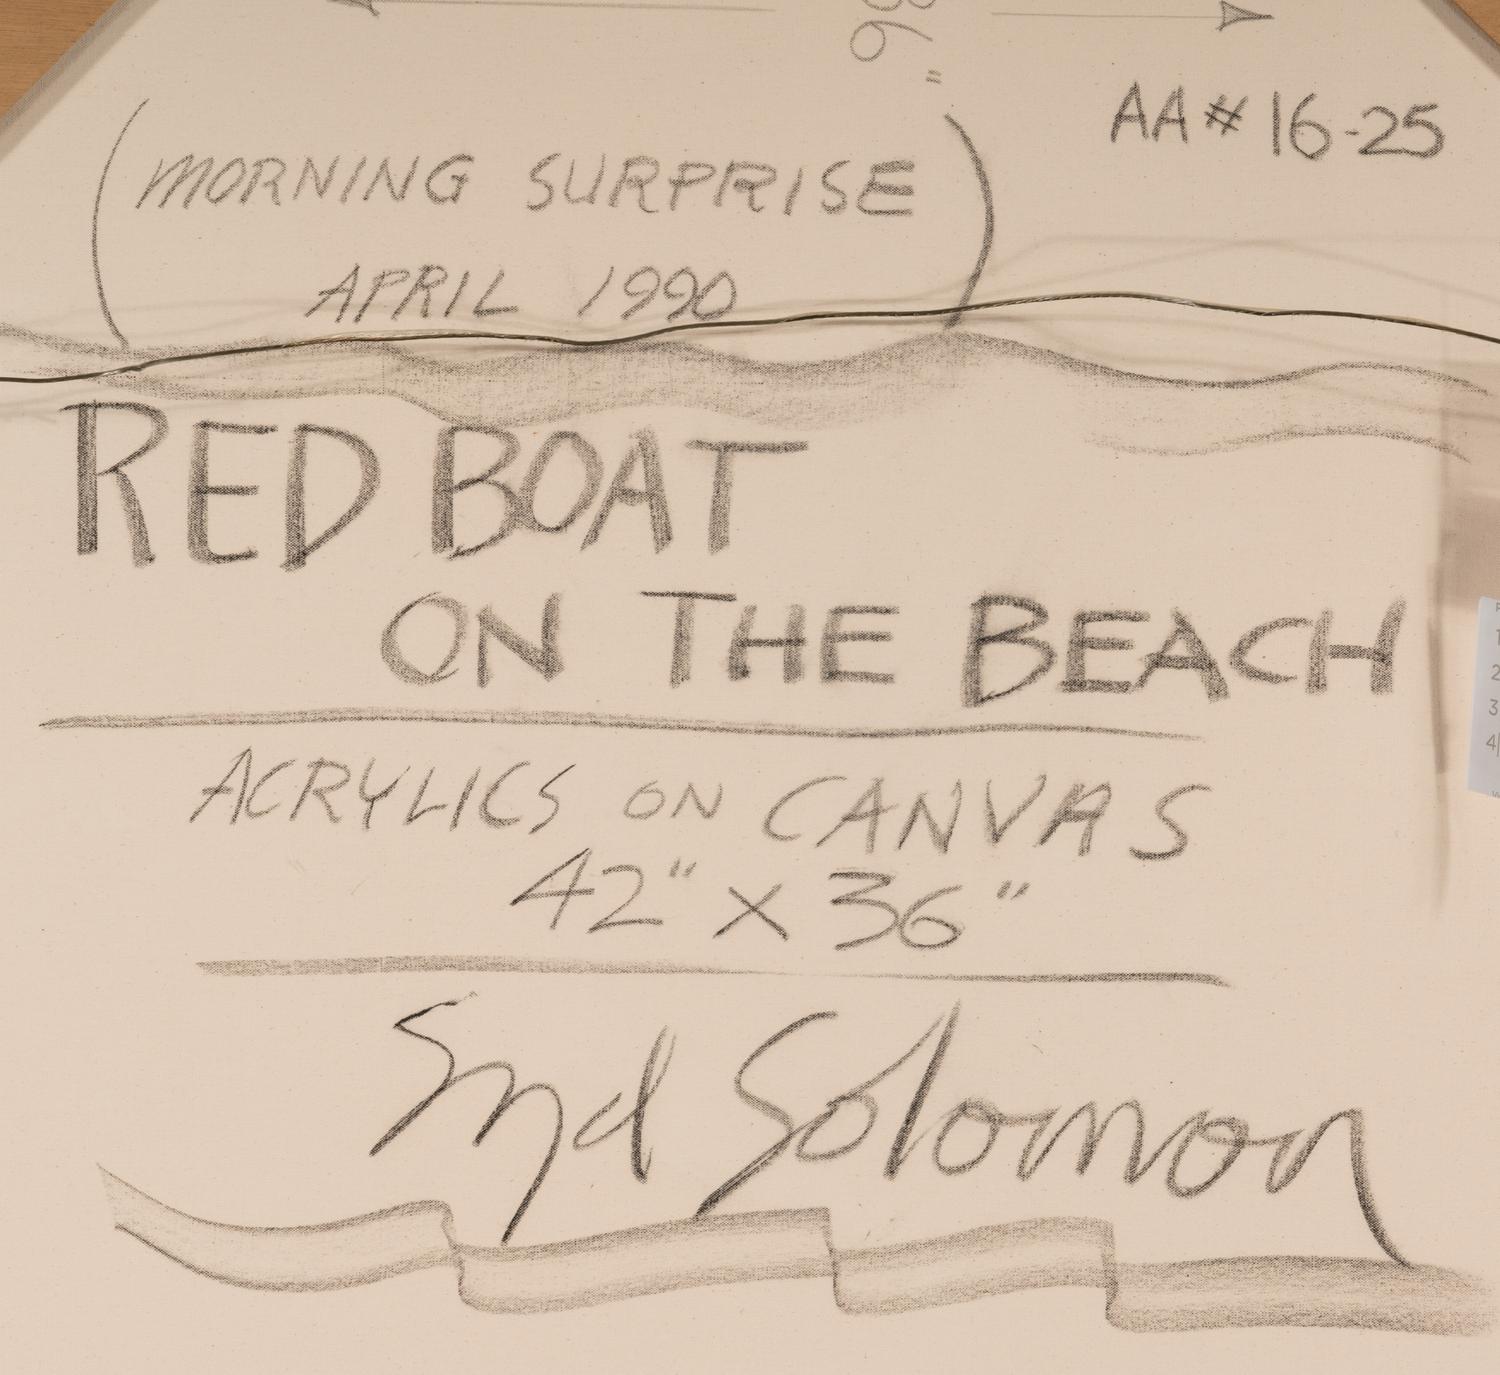 36"
AA # 16-25
(MORNING SURPRISE
APRIL 1990)
RED BOAT
ON THE BEACH
ACRYLICS ON CANVAS
42" X 36"
Syd Solomon
1
2
3
4